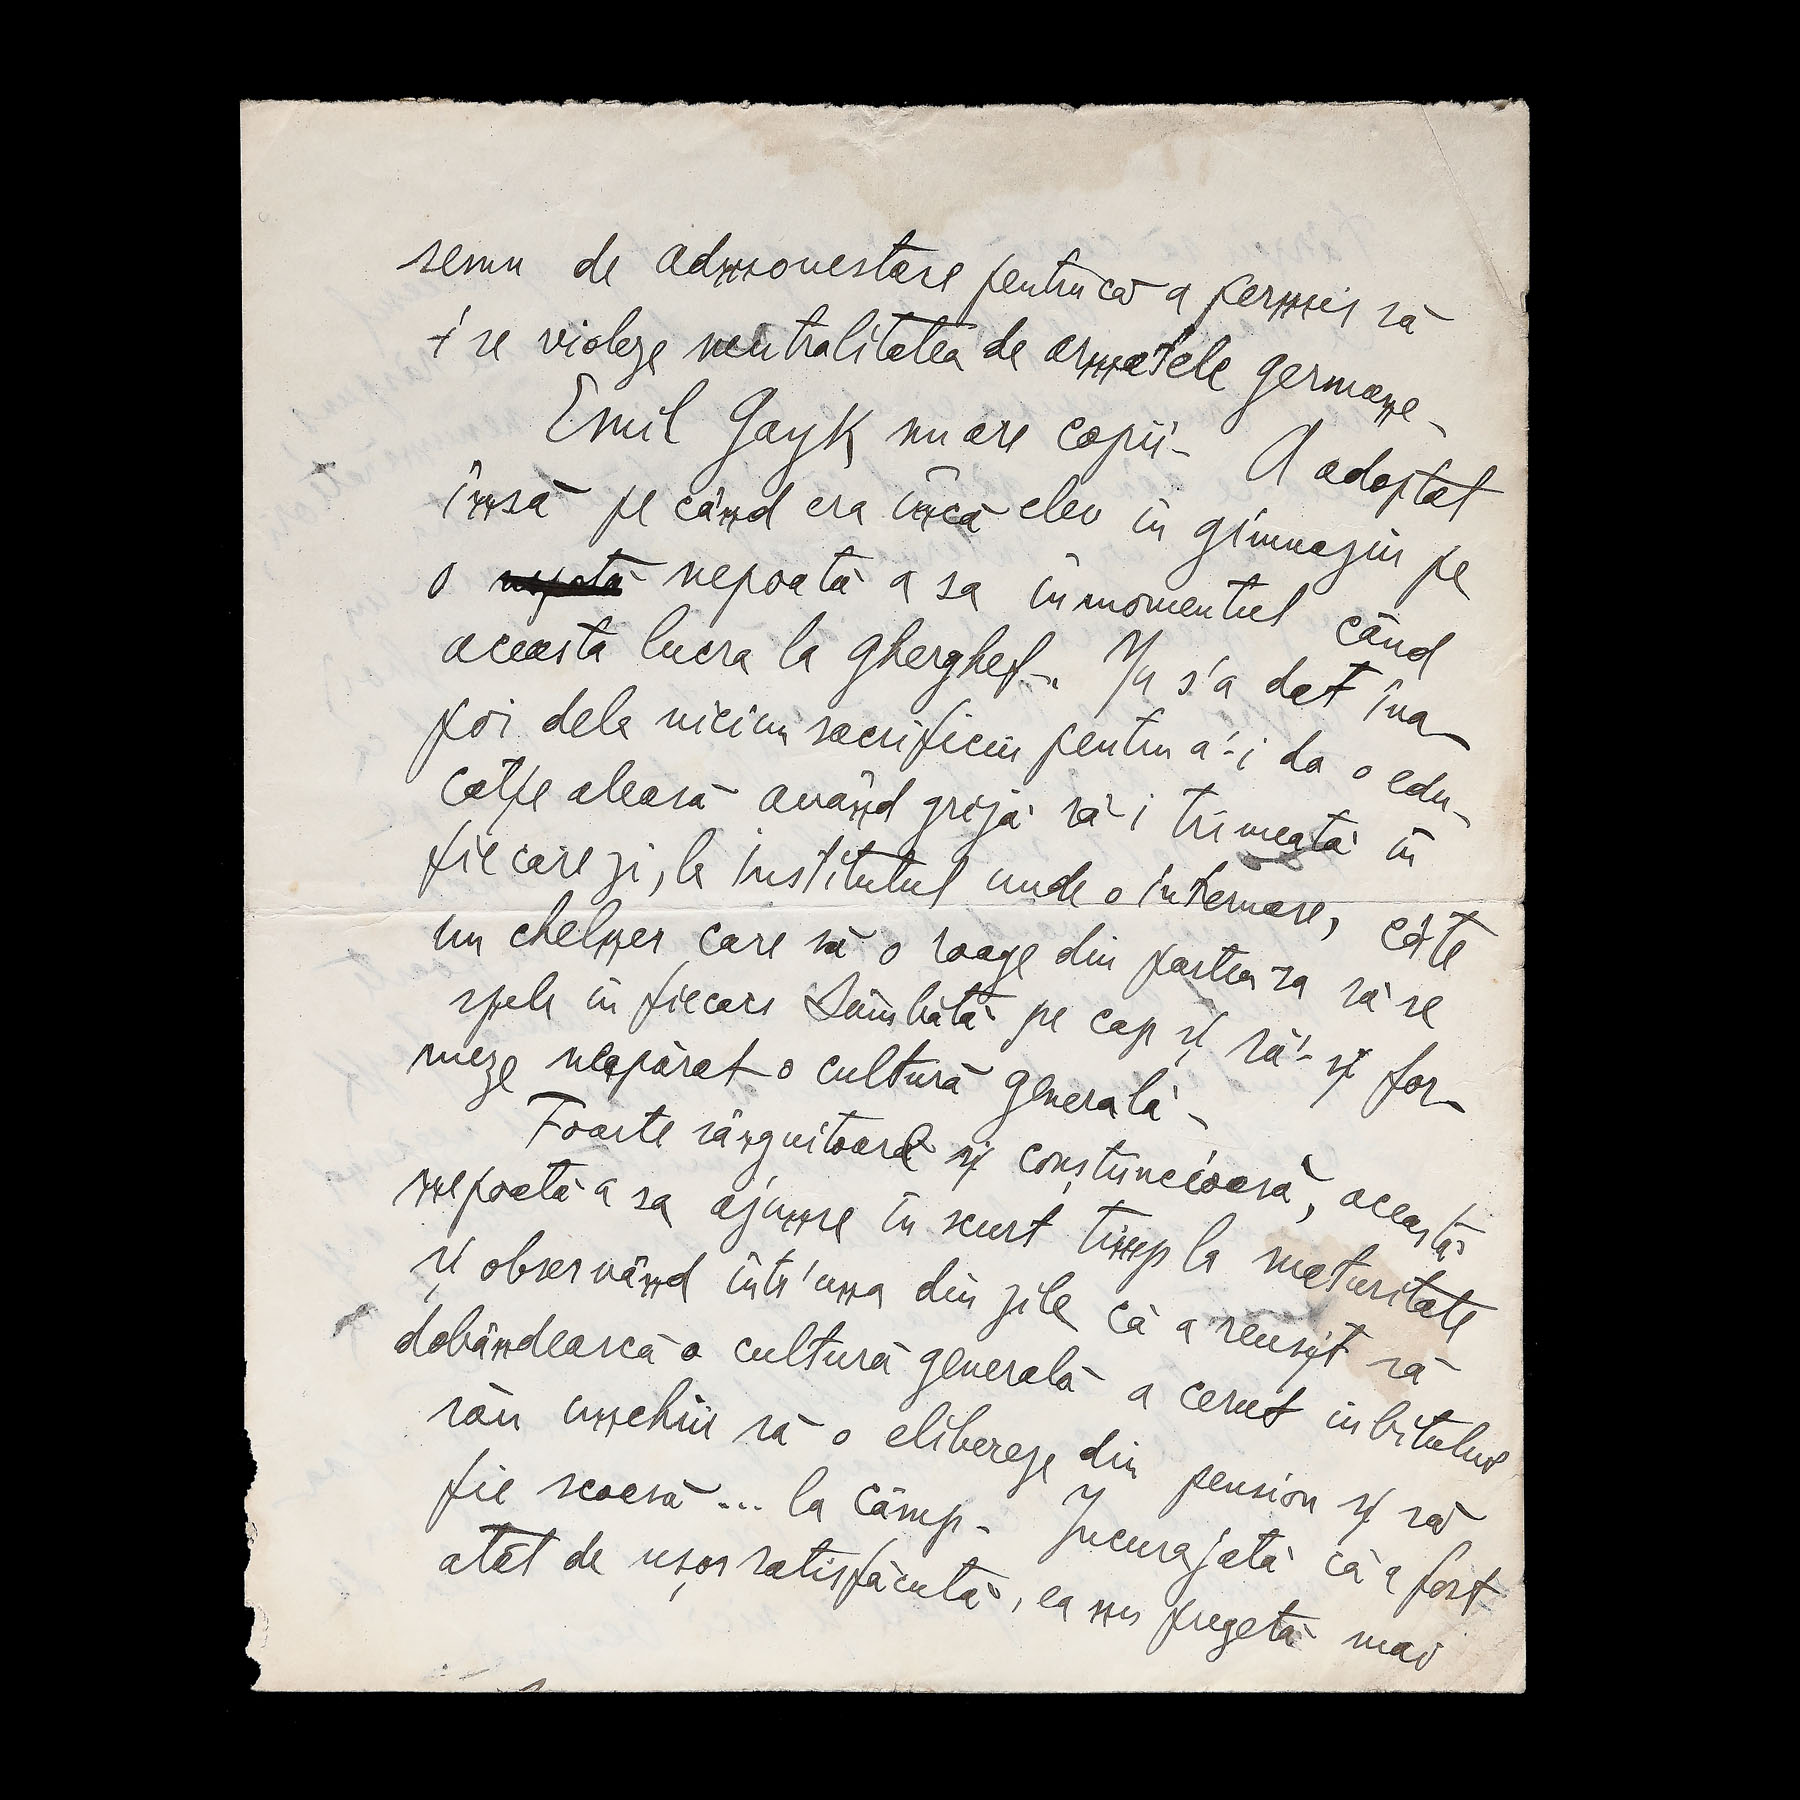 semn de admonestare pentrucă a permis să
i se violeze neutralitatea de armatele germane-
Emil Gayk nu are copii- A adoptat
însă pe când era încă elev în gimnaziu pe
o nepoată a sa în momentul când
aceasta lucra la gherghef-. Nu s'a dat îna-
poi dela niciun sacrificiu pentru a'-i da o edu-
cație aleasă având grijă să-i trimeată în
fiecare zi, la institutul unde o internase, câte
un chelner care să o roage din partea sa să se
spele în fiecare Sâmbătă pe cap și să'-și for-
meze neapărat o cultură generală-
Foarte sârguitoare și conștiincioasă, această
nepoată a sa ajunse în scurt timp la maturitate
și observând într'una din zile că a reușit să
dobândească o cultură generală a cerut înbitului
său unchiu să o elibereze din pension și să
fie scoasă... la câmp- Încurajată că a fost
atât de ușor satisfăcută, ea nu pregetă mai